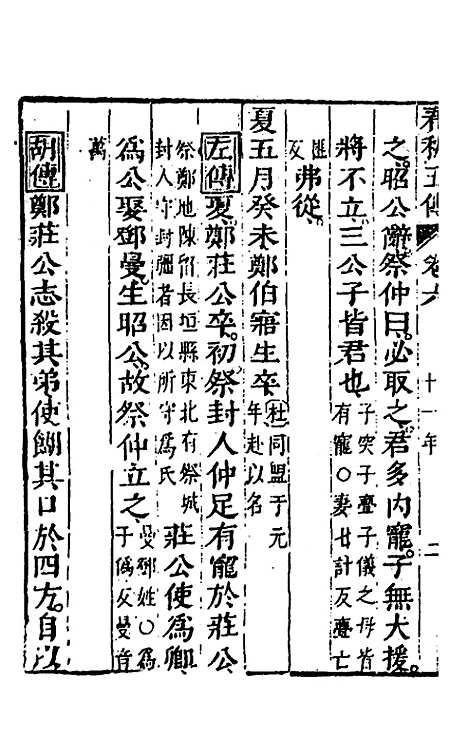 春秋五傳 卷六 十一年 二
之昭公辭祭仲曰必取之君多内寵子無大援
將不立三公子皆君也子突子亹子儀之母皆有寵○妻七計反亹亡
匪反弗從
夏五月癸未鄭伯寤生卒杜同盟于元年赴以名
左傳夏鄭莊公卒初祭封人仲足有寵於莊公
祭鄭地陳留長垣縣東北有祭城封人守封疆者因以所守爲氏莊公使爲卿
爲公娶鄧曼生昭公故祭仲立之曼鄧姓○爲于僞反曼音
萬
胡傳鄭莊公志殺其弟使餬其口於四方自以